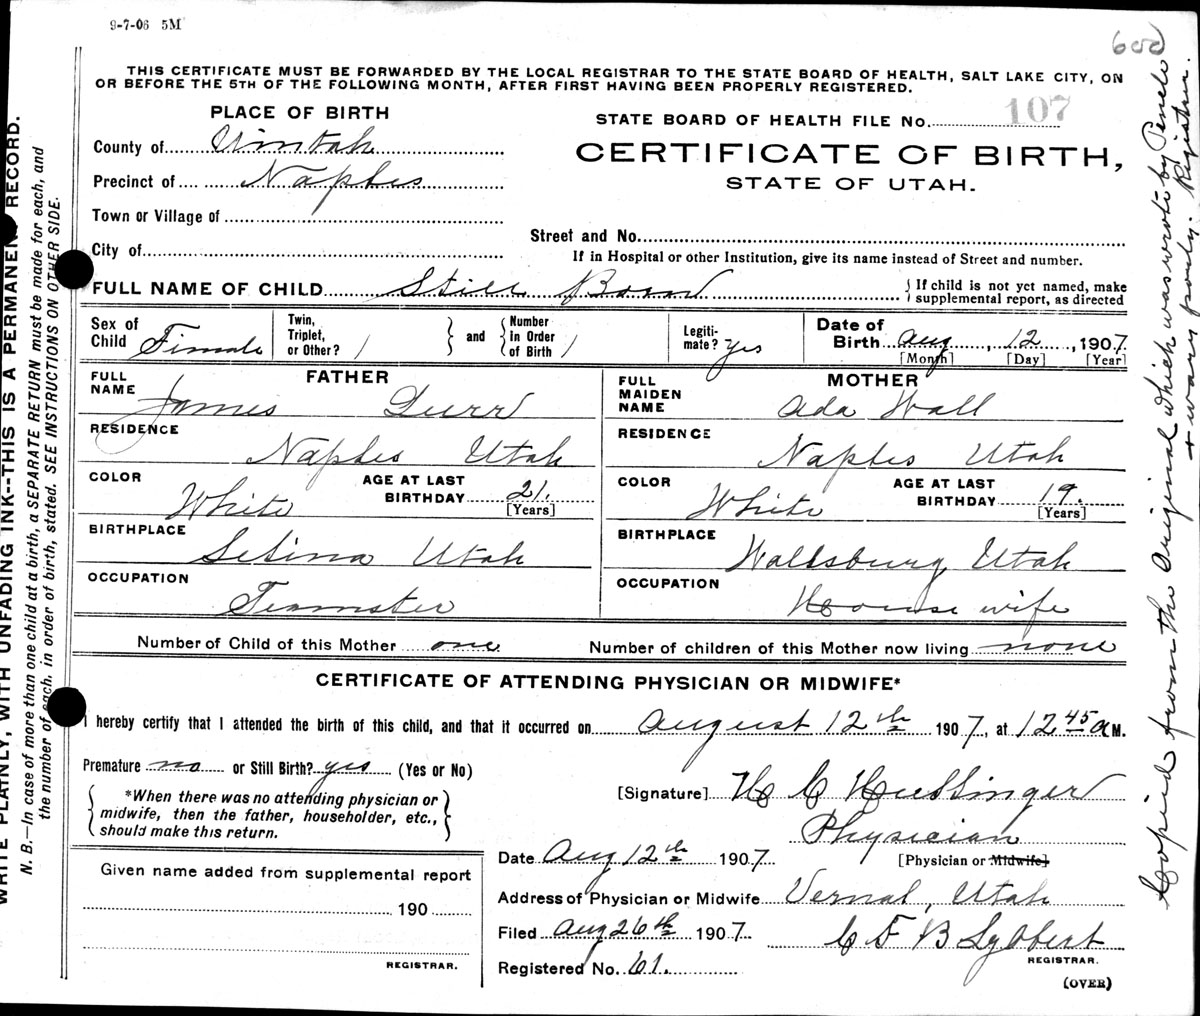 9-7-06 5M
600
THIS CERTIFICATE MUST BE FORWARDED BY THE LOCAL REGISTRAR TO THE STATE BOARD OF HEALTH, SALT LAKE CITY, ON
OR BEFORE THE 5TH OF THE FOLLOWING MONTH, AFTER FIRST HAVING BEEN PROPERLY REGISTERED.
PLACE OF BIRTH
STATE BOARD OF HEALTH FILE No. 107
County of Uintah
CERTIFICATE OF BIRTH,
Precinct of Naples
STATE OF UTAH.
Town or Village of
Street and No.
City of
If in Hospital or other Institution, give its name instead of Street and number.
FULL NAME OF CHILD Still Born
{ If child is not yet named, make
supplemental report, as directed
Sex of Child Female
Twin, Triplet, or Other? 1 } and { Number In Order of Birth 1
Legitimate? yes
Date of Birth Aug, 12, 1907.
[Month] [Day] [Year]
FATHER
FULL NAME James Durr
RESIDENCE Naples Utah
COLOR White
AGE AT LAST BIRTHDAY 21.
[Years]
BIRTHPLACE Selina Utah
OCCUPATION Teamster
MOTHER
FULL MAIDEN NAME Ada Wall
RESIDENCE Naples Utah
COLOR White
AGE AT LAST BIRTHDAY 19.
[Years]
BIRTHPLACE Wallsburg Utah
OCCUPATION House wife
Number of Child of this Mother one Number of children of this Mother now living none
CERTIFICATE OF ATTENDING PHYSICIAN OR MIDWIFE*
I hereby certify that I attended the birth of this child, and that it occurred on August 12th 1907, at 12 45 a M.
Premature no or Still Birth? yes (Yes or No)
{ *When there was no attending physician or
midwife, then the father, householder, etc.,
should make this return. }
[Signature] H C Hullinger
Physician
[Physician or Midwife]
Date Aug 12th 1907
Address of Physician or Midwife Vernal, Utah
Filed Aug 26th 1907. C F B Lybbert
REGISTRAR.
Registered No. 61.
(OVER)
Given name added from supplemental report
190
REGISTRAR.
WRITE PLAINLY, WITH UNFADING INK--THIS IS A PERMANENT RECORD.
N. B.—In case of more than one child at a birth, a SEPARATE RETURN must be made for each, and
the number of each, in order of birth, stated. SEE INSTRUCTIONS ON OTHER SIDE.
Copied from the Original which was wrote by Pencle
+ wars poorly. Registrar.